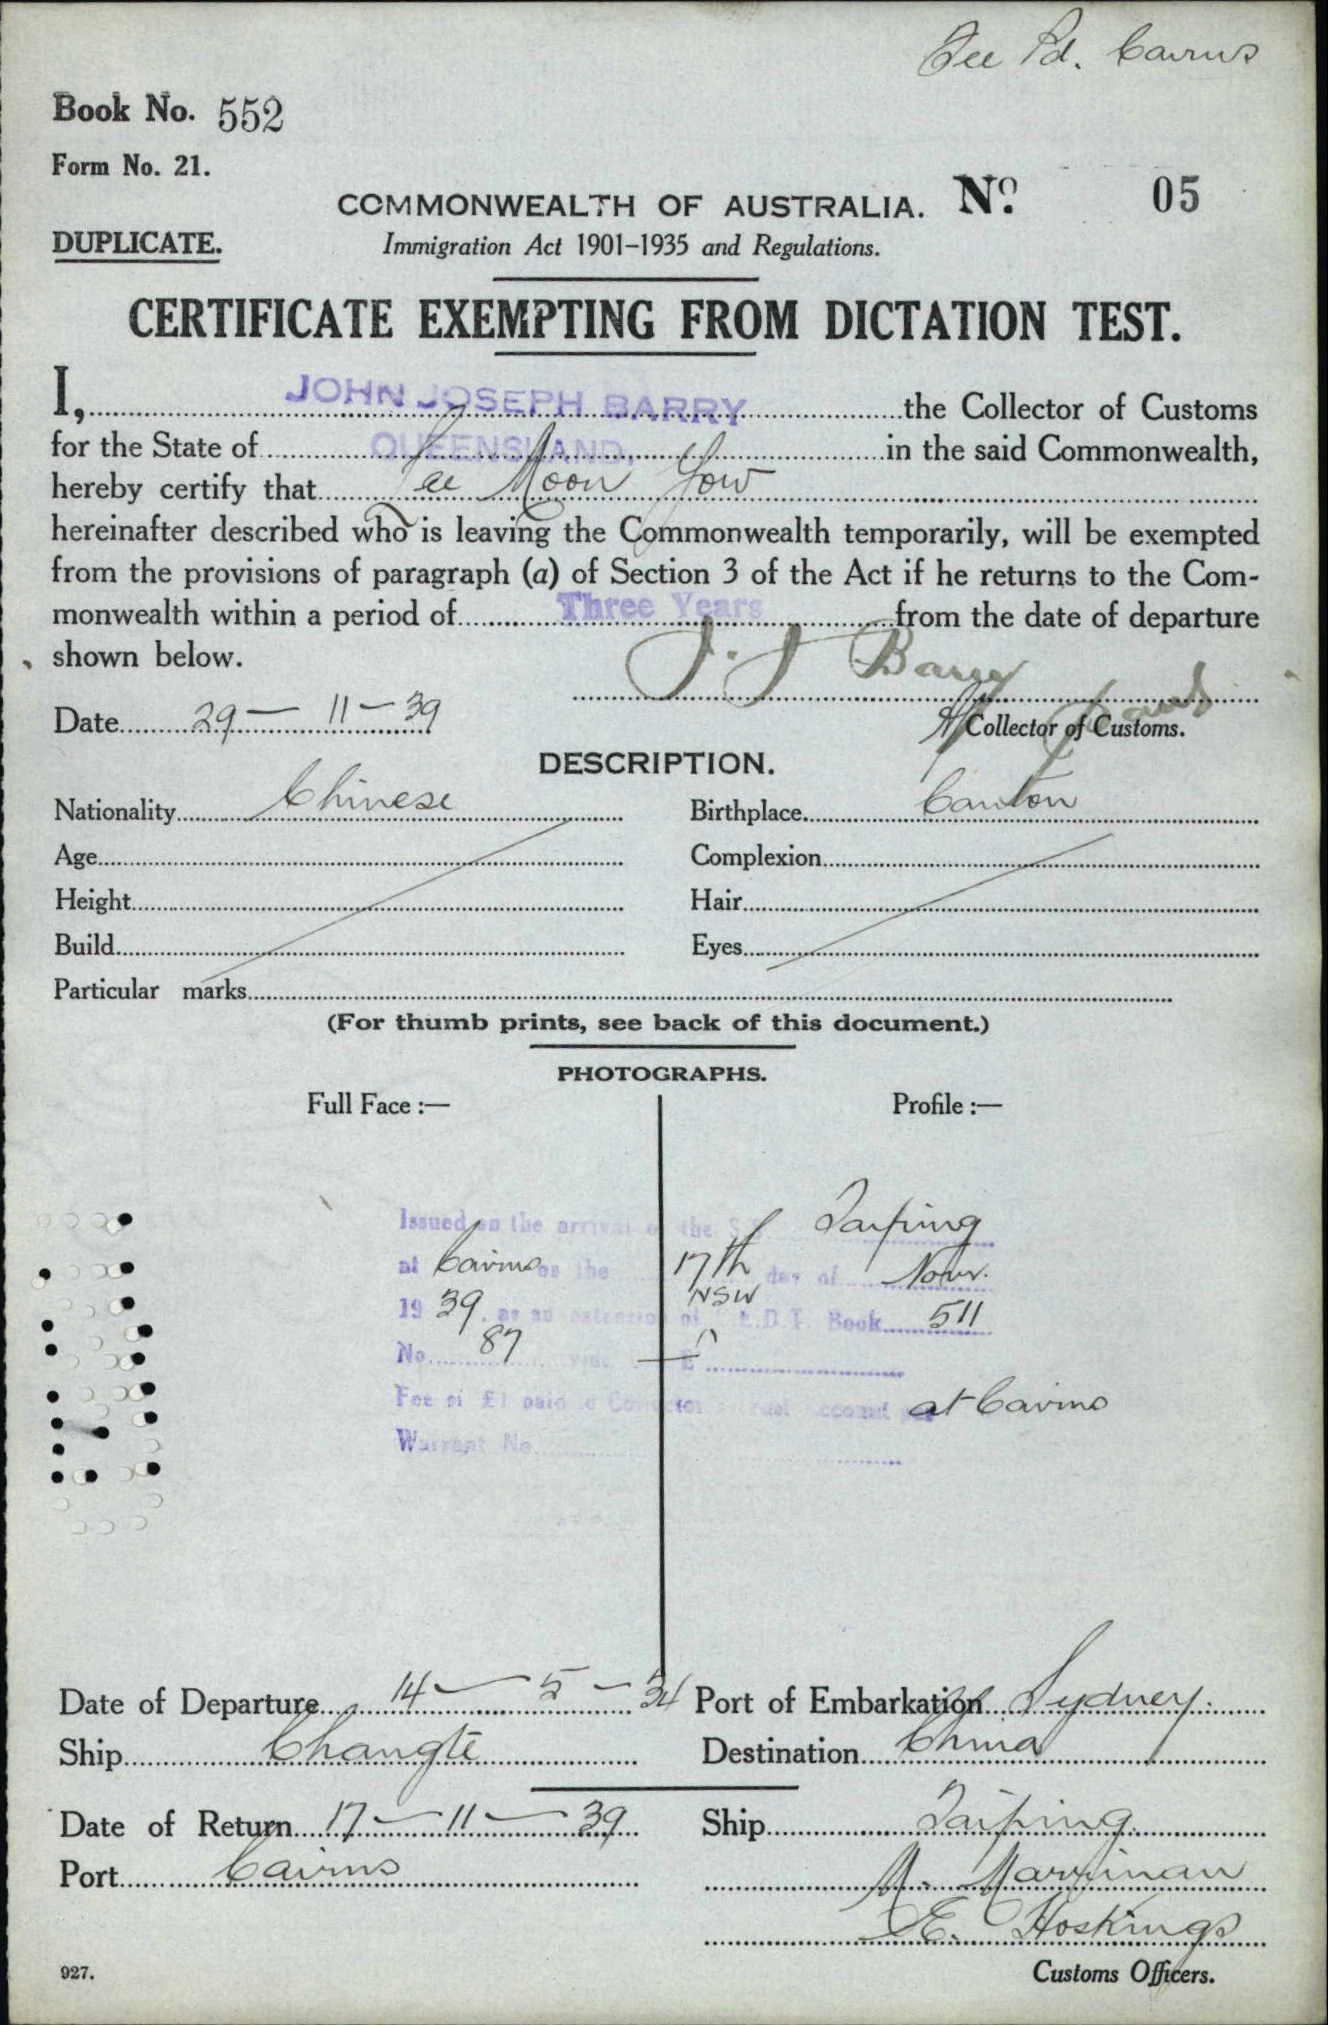 Fee Pd. Cairns
Book No. 552
Form No. 21.
COMMONWEALTH OF AUSTRALIA. No. 05
DUPLICATE.
Immigration Act 1901-1935 and Regulations.
CERTIFICATE EXEMPTING FROM DICTATION TEST.
I, JOHN JOSEPH BARRY the Collector of Customs
for the State of QUEENSLAND, in the said Commonwealth,
hereby certify that Fee Moon Yow
hereinafter described who is leaving the Commonwealth temporarily, will be exempted
from the provisions of paragraph (a) of Section 3 of the Act if he returns to the Com-
monwealth within a period of Three Years from the date of departure
shown below.
J. J Barry
Date 29 — 11 — 39
A/ Collector of Customs.
DESCRIPTION.
Nationality Chinese Birthplace Canton
Age Complexion
Height Hair
Build Eyes
Particular marks
(For thumb prints, see back of this document.)
PHOTOGRAPHS.
Full Face :— Profile :—
Issued on the arrival of the S.S. Taiping
at Cairns on the 17th day of Novr.
NSW
1939, as an extension of C.E.D.T. Book 511
No. 87
Fee of £1 paid to Collector Account at Cairns
Warrant No.
Date of Departure 14 — 5 — 34 Port of Embarkation Sydney.
Ship Changte Destination China
Date of Return 17 — 11 — 39 Ship Taiping.
Port Cairns M. Marrinan
E. Hoskings
927. Customs Officers.